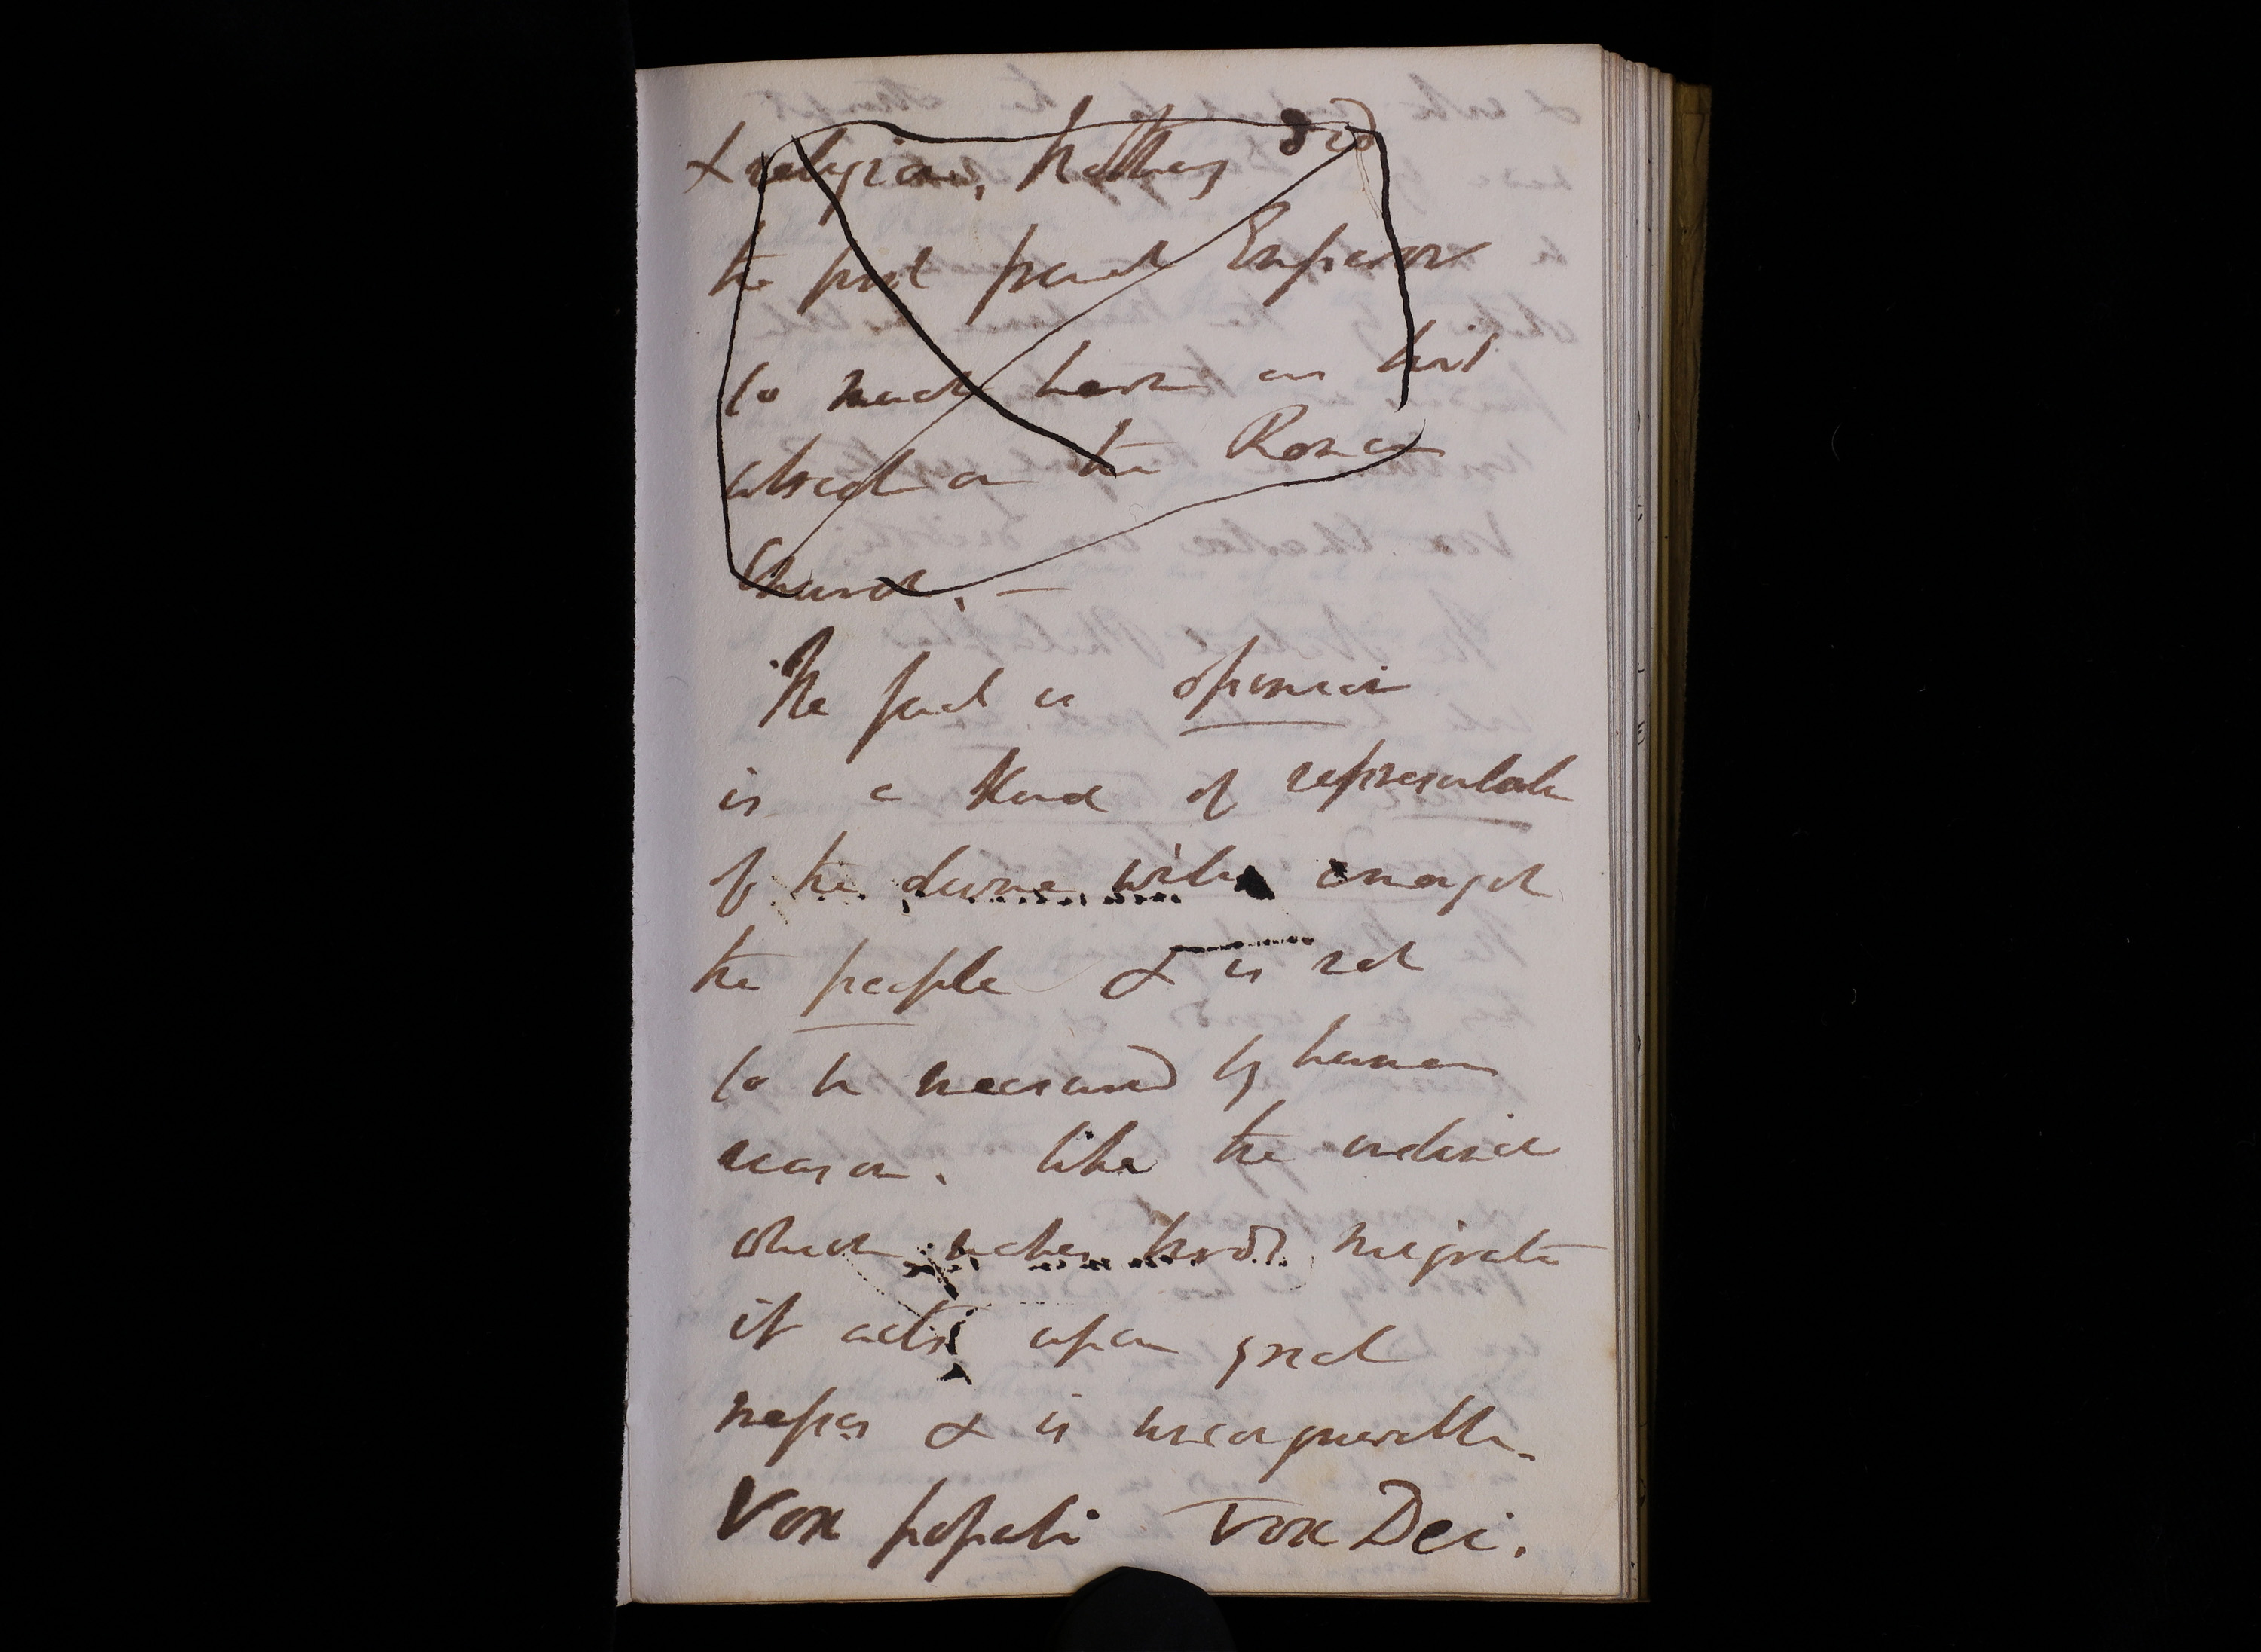 & religion. Nothing did
the first french Emperor
so much harm as his
attack on the Roman
Church. —
The fact is opinion
is a kind of representation
of the divine will amongst
the people & is not
to be measured by human
reason. like the instinct
which makes birds migrate
it acts upon great
masses & is unconquerable.
Vox populi Vox Dei.